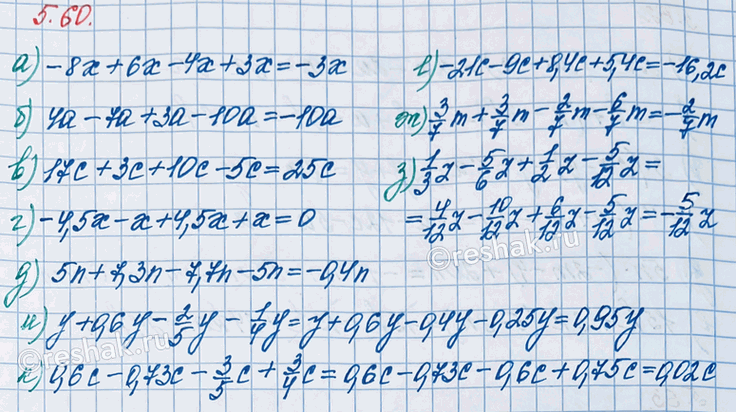 5.60.
а) -8x + 6x - 4x + 3x = -3x
б) 4a - 7a + 3a - 10a = -10a
в) 17c + 3c + 10c - 5c = 25c
г) -4,5x - x + 4,5x + x = 0
д) 5n + 7,3n - 7,7n - 5n = -0,4n
е) -21c - 9c + 8,4c + 5,4c = -16,2c
ж) 3/7 m + 3/7 m - 2/7 m - 6/7 m = -2/7 m
з) 1/3 z - 5/6 z + 1/2 z - 5/12 z =
= 4/12 z - 10/12 z + 6/12 z - 5/12 z = -5/12 z
и) y + 0,6y - 2/5 y - 1/4 y = y + 0,6y - 0,4y - 0,25y = 0,95y
к) 0,6c - 0,73c - 3/5 c + 3/4 c = 0,6c - 0,73c - 0,6c + 0,75c = 0,02c
©reshak.ru
©reshak.ru